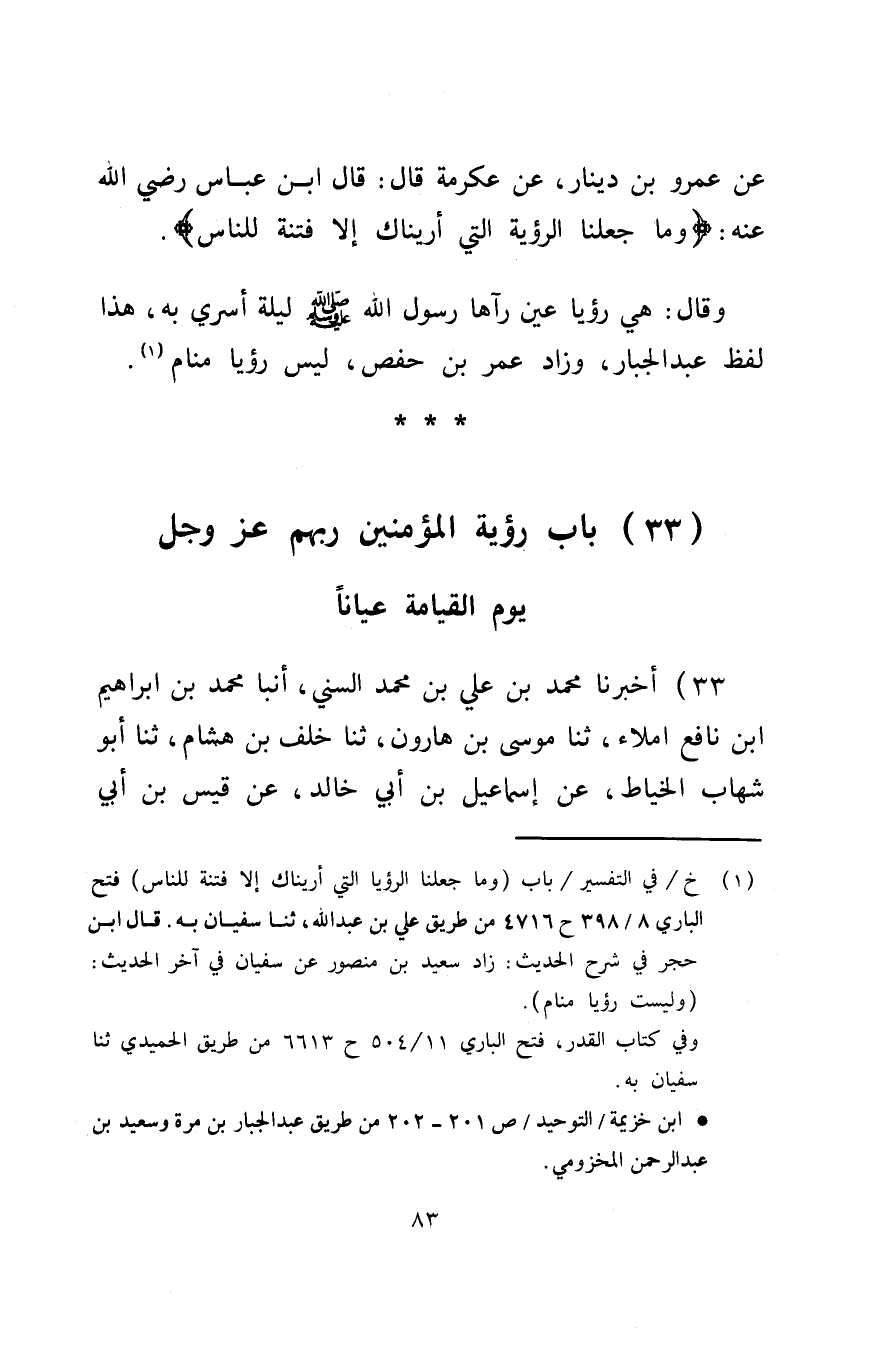 عن عمرو بن دينار، عن عكرمة قال: قال ابن عباس رضي الله
عنه: ﴿وما جعلنا الرؤية التي أريناك إلا فتنة للناس﴾.
وقال: هي رؤيا عين رآها رسول الله ﷺ ليلة أسري به، هذا
لفظ عبدالجبار، وزاد عمر بن حفص، ليس رؤيا منام (١).
* * *
(٣٣) باب رؤية المؤمنين ربهم عز وجل
يوم القيامة عياناً
٣٣) أخبرنا محمد بن علي بن محمد السني، أنبا محمد بن ابراهيم
ابن نافع املاء، ثنا موسى بن هارون، ثنا خلف بن هشام، ثنا أبو
شهاب الخياط، عن إسماعيل بن أبي خالد، عن قيس بن أبي
(١) خ / في التفسير / باب (وما جعلنا الرؤيا التي أريناك إلا فتنة للناس) فتح
الباري ٨ / ٣٩٨ ح ٤٧١٦ من طريق علي بن عبدالله، ثنا سفيان به. قال ابن
حجر في شرح الحديث: زاد سعيد بن منصور عن سفيان في آخر الحديث:
(وليست رؤيا منام).
وفي كتاب القدر، فتح الباري ٥٠٤/١١ ح ٦٦١٣ من طريق الحميدي ثنا
سفيان به.
● ابن خزيمة / التوحيد / ص ٢٠١ - ٢٠٢ من طريق عبدالجبار بن مرة وسعيد بن
عبدالرحمن المخزومي.
٨٣